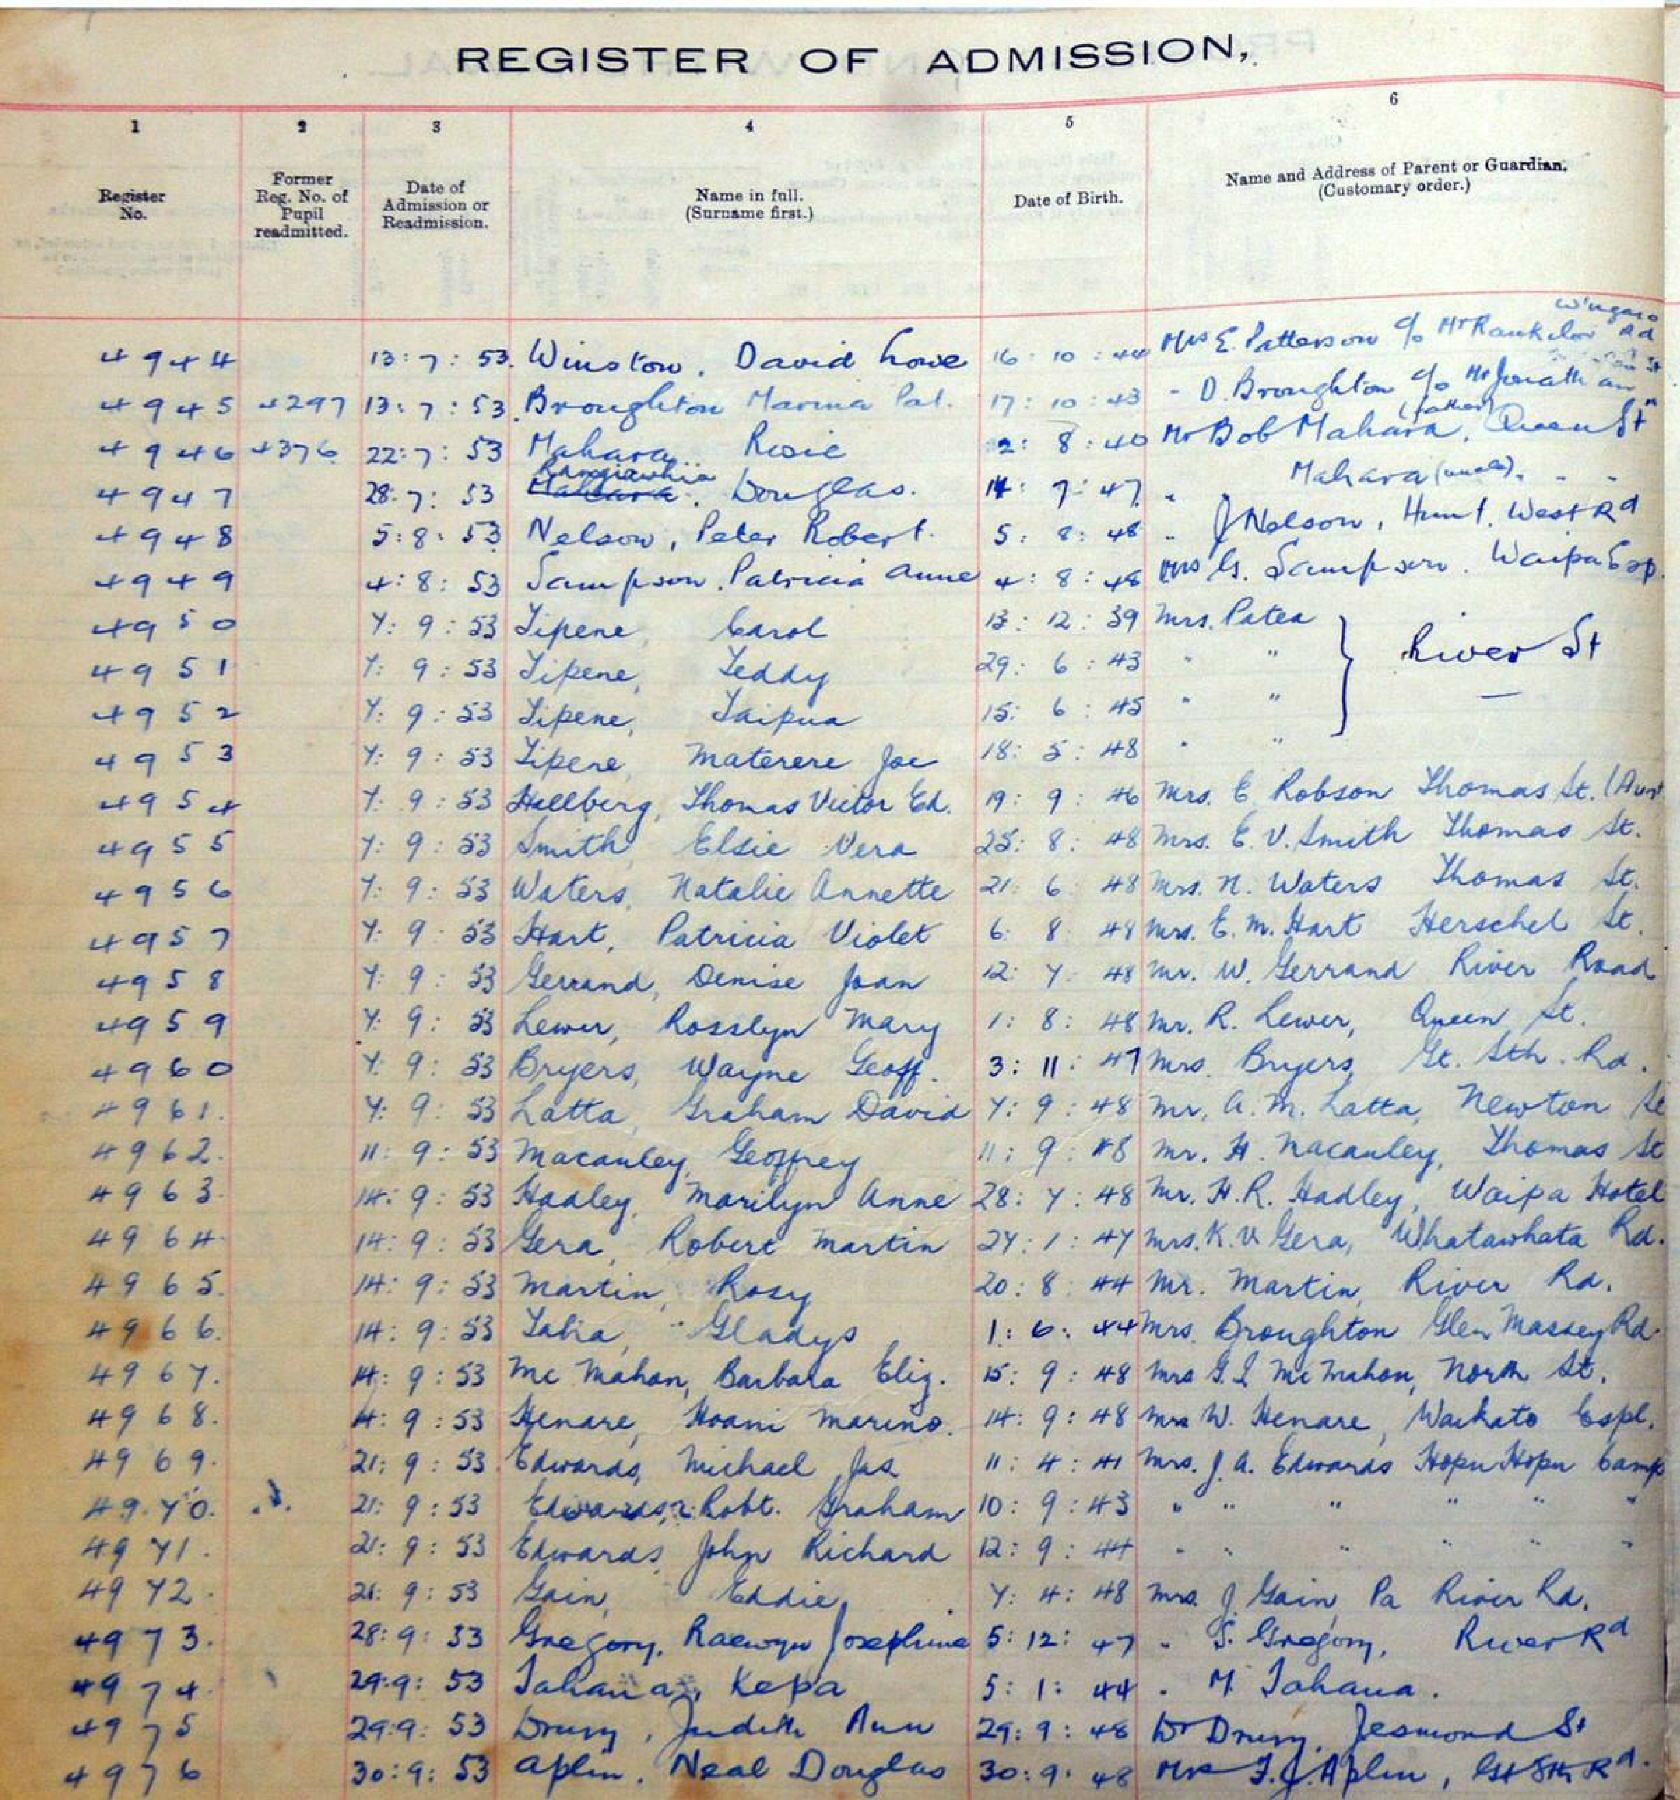 REGISTER OF ADMISSION,
1 2 3 4 5 6
Register No. Former Reg. No. of Pupil readmitted. Date of Admission or Readmission. Name in full. (Surname first.) Date of Birth. Name and Address of Parent or Guardian. (Customary order.)
4944 13:7:53. Winstow. David Lowe 16:10:44 Mrs E. Patterson c/o Mr Rd
4945 4297 13:7:53. Broughton Marina Pat. 17:10:43 - D. Broughton c/o Mr Jonathan St
4946 4376 22:7:53 Mahara Rosie 2:8:40 Mr Bob Mahara (father), Queen St
4947 28.7:53 Rangiawhia Mahara. Douglas. 14:7:47 " Mahara (uncle). " "
4948 5:8:53 Nelson, Peter Robert. 5.8:48 " J Nelson, Hunt. West Rd
4949 4:8:53 Sampson. Patricia Anne 4:8:48 Mrs G. Sampson. Waipa Esp.
4950 7:9:53 Tipene, Carol 13:12:39 Mrs. Patea } River St
4951 7:9:53 Tipene, Teddy 29:6:43 " "
4952 7:9:53 Tipene, Taipua 15:6:45 " "
4953 7:9:53 Tipene, Materere Joe 18:5:48 " "
4954 7:9:53 Hallberg, Thomas Victor Ed. 19:9:46 Mrs. E Robson Thomas St. (Aunt
4955 7:9:53 Smith, Elsie Vera 25:8:48 Mrs. E. V. Smith Thomas St.
4956 7:9:53 Waters, Natalie Annette 21:6:48 Mrs. N. Waters Thomas St.
4957 7:9:53 Hart, Patricia Violet 6:8:48 Mrs. E. M. Hart Herschel St.
4958 7:9:53 Gerrand, Denise Joan 12:7:48 Mr. W. Gerrand River Road
4959 7:9:53 Lewer, Rosslyn Mary 1:8:48 Mr. R. Lewer, Queen St.
4960 7:9:53 Bryers, Wayne Geoff. 3:11:47 Mrs. Bryers, Gt. Sth. Rd.
4961. 7:9:53 Latta, Graham David 7:9:48 Mr. A. M. Latta, Newton St
4962. 11:9:53 Macauley, Geoffrey 11:9:48 Mr. H. Macauley, Thomas St
4963. 14:9:53 Hadley, Marilyn Anne 28:7:48 Mr. H. R. Hadley, Waipa Hotel
4964. 14:9:53 Gera, Robert Martin 27:1:47 Mrs. K. V Gera, Whatawhata Rd.
4965. 14:9:53 Martin, Rosy 20:8:44 Mr. Martin, River Rd.
4966. 14:9:53 Taha, Gladys 1:6:44 Mrs. Broughton Glen Massey Rd.
4967. 14:9:53 Mc Mahon, Barbara Eliz. 15:9:48 Mrs G. I. Mc Mahon, North St.
4968. 14:9:53 Henare, Hoani Marino. 14:9:48 Mrs W. Henare, Waikato Espl.
4969. 21:9:53. Edwards, Michael Jas. 11:4:41 Mrs. J. A. Edwards Hopu Hopu Camp
4970. 21:9:53 Edwards, Robt. Graham 10:9:43 " " " " " "
4971. 21:9:53 Edwards, John Richard 12:9:44 " " " " " "
4972. 21:9:53 Gain, Eddie, 7:4:48 Mrs. J Gain, Pa River Rd.
4973. 28:9:53 Gregory, Raewyn Josephine 5:12:47 " S. Gregory, River Rd
4974. 29:9:53 Tahana, Kepa 5:1:44 " M Tahana.
4975 29:9:53 Drury, Judith Ann 29:9:48 Dr Drury, Jesmond St
4976 30:9:53 Aplin, Neal Douglas 30:9:48 Mr F. J. Aplin, Gt Sth Rd.